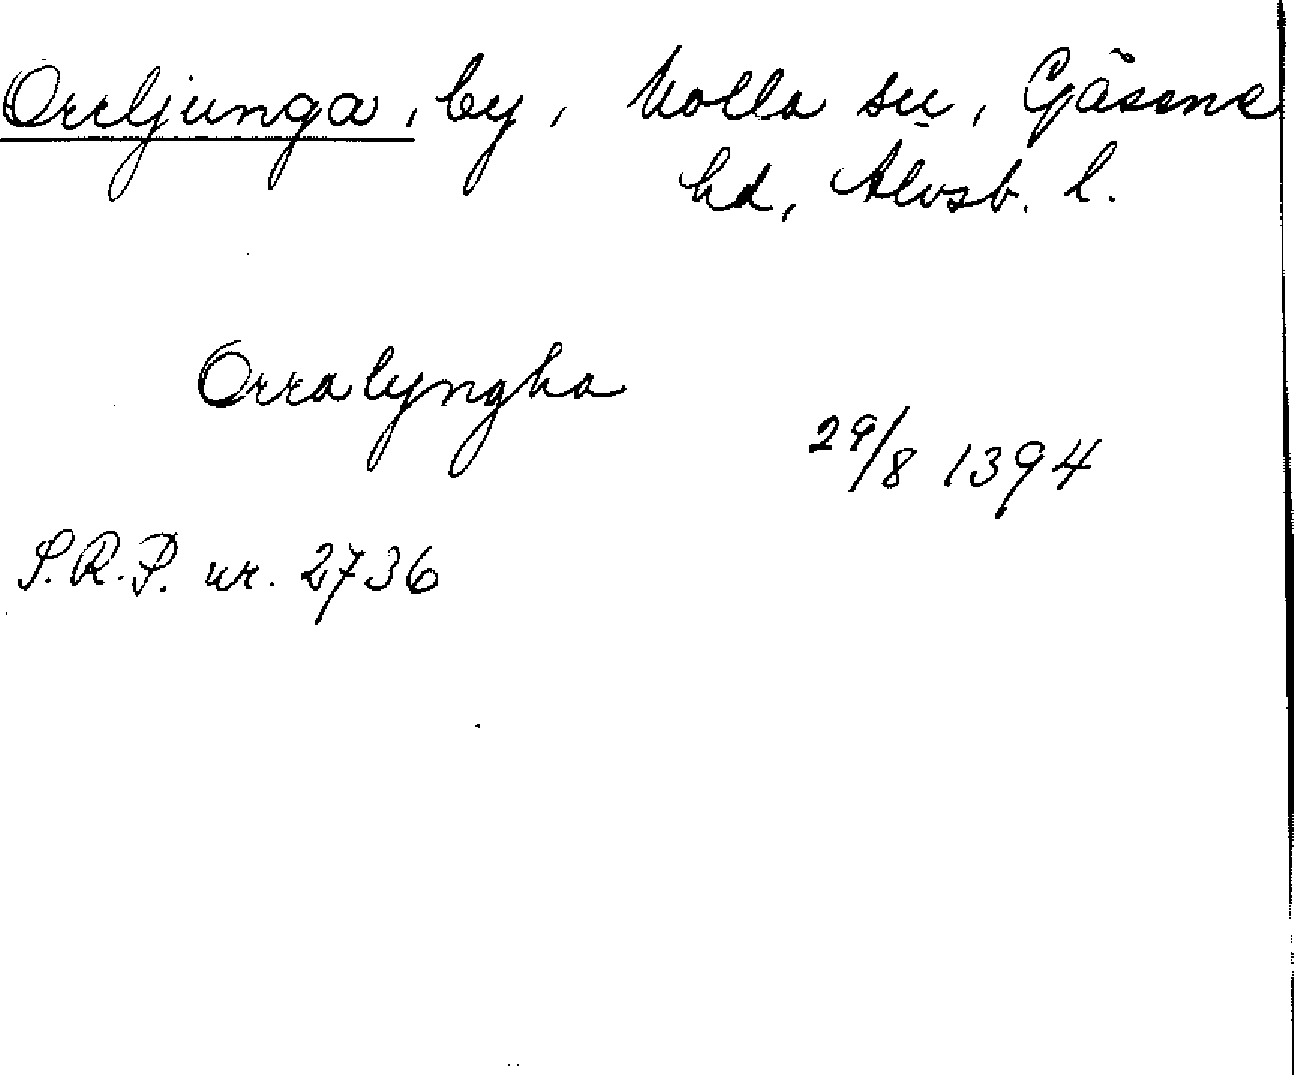 Orrljunga, by, Molla sn, Gäsene
hd, Älvsb. l.
Orralyngha
29/8 1394
S.R.P. nr. 2736